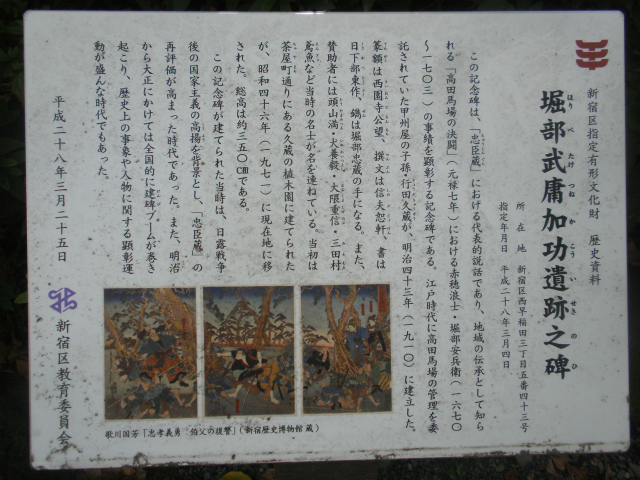 新宿区指定有形文化財　歴史資料
堀部武庸加功遺跡之碑
ほりべたけつねかこういせきのひ
所在地　新宿区西早稲田三丁目五番四十三号
指定年月日　平成二十八年三月四日
この記念碑は、「忠臣蔵」における代表的説話であり、地域の伝承として知ら
れる「高田馬場の決闘」（元禄七年）における赤穂浪士・堀部安兵衛（一六七〇
〜一七〇三）の事績を顕彰する記念碑である。江戸時代に高田馬場の管理を委
託されていた甲州屋の子孫・行田久蔵が、明治四十三年（一九一〇）に建立した。
篆額は西園寺公望、撰文は信夫恕軒、書は
日下部東作、鐫は堀部忠蔵の手になる。また、
賛助者には頭山満・犬養毅・大隈重信・三田村
鳶魚など当時の名士が名を連ねている。当初は
茶屋町通りにある久蔵の植木園に建てられた
が、昭和四十六年（一九七一）に現在地に移
された。総高は約三五〇㎝である。
この記念碑が建てられた当時は、日露戦争
後の国家主義の高揚を背景とし、「忠臣蔵」の
再評価が高まった時代であった。また、明治
から大正にかけては全国的に建碑ブームが巻き
起こり、歴史上の事象や人物に関する顕彰運
動が盛んな時代でもあった。
平成二十八年三月二十五日
新宿区教育委員会
歌川国芳「忠孝義勇　伯父の復讐」（新宿歴史博物館 蔵）